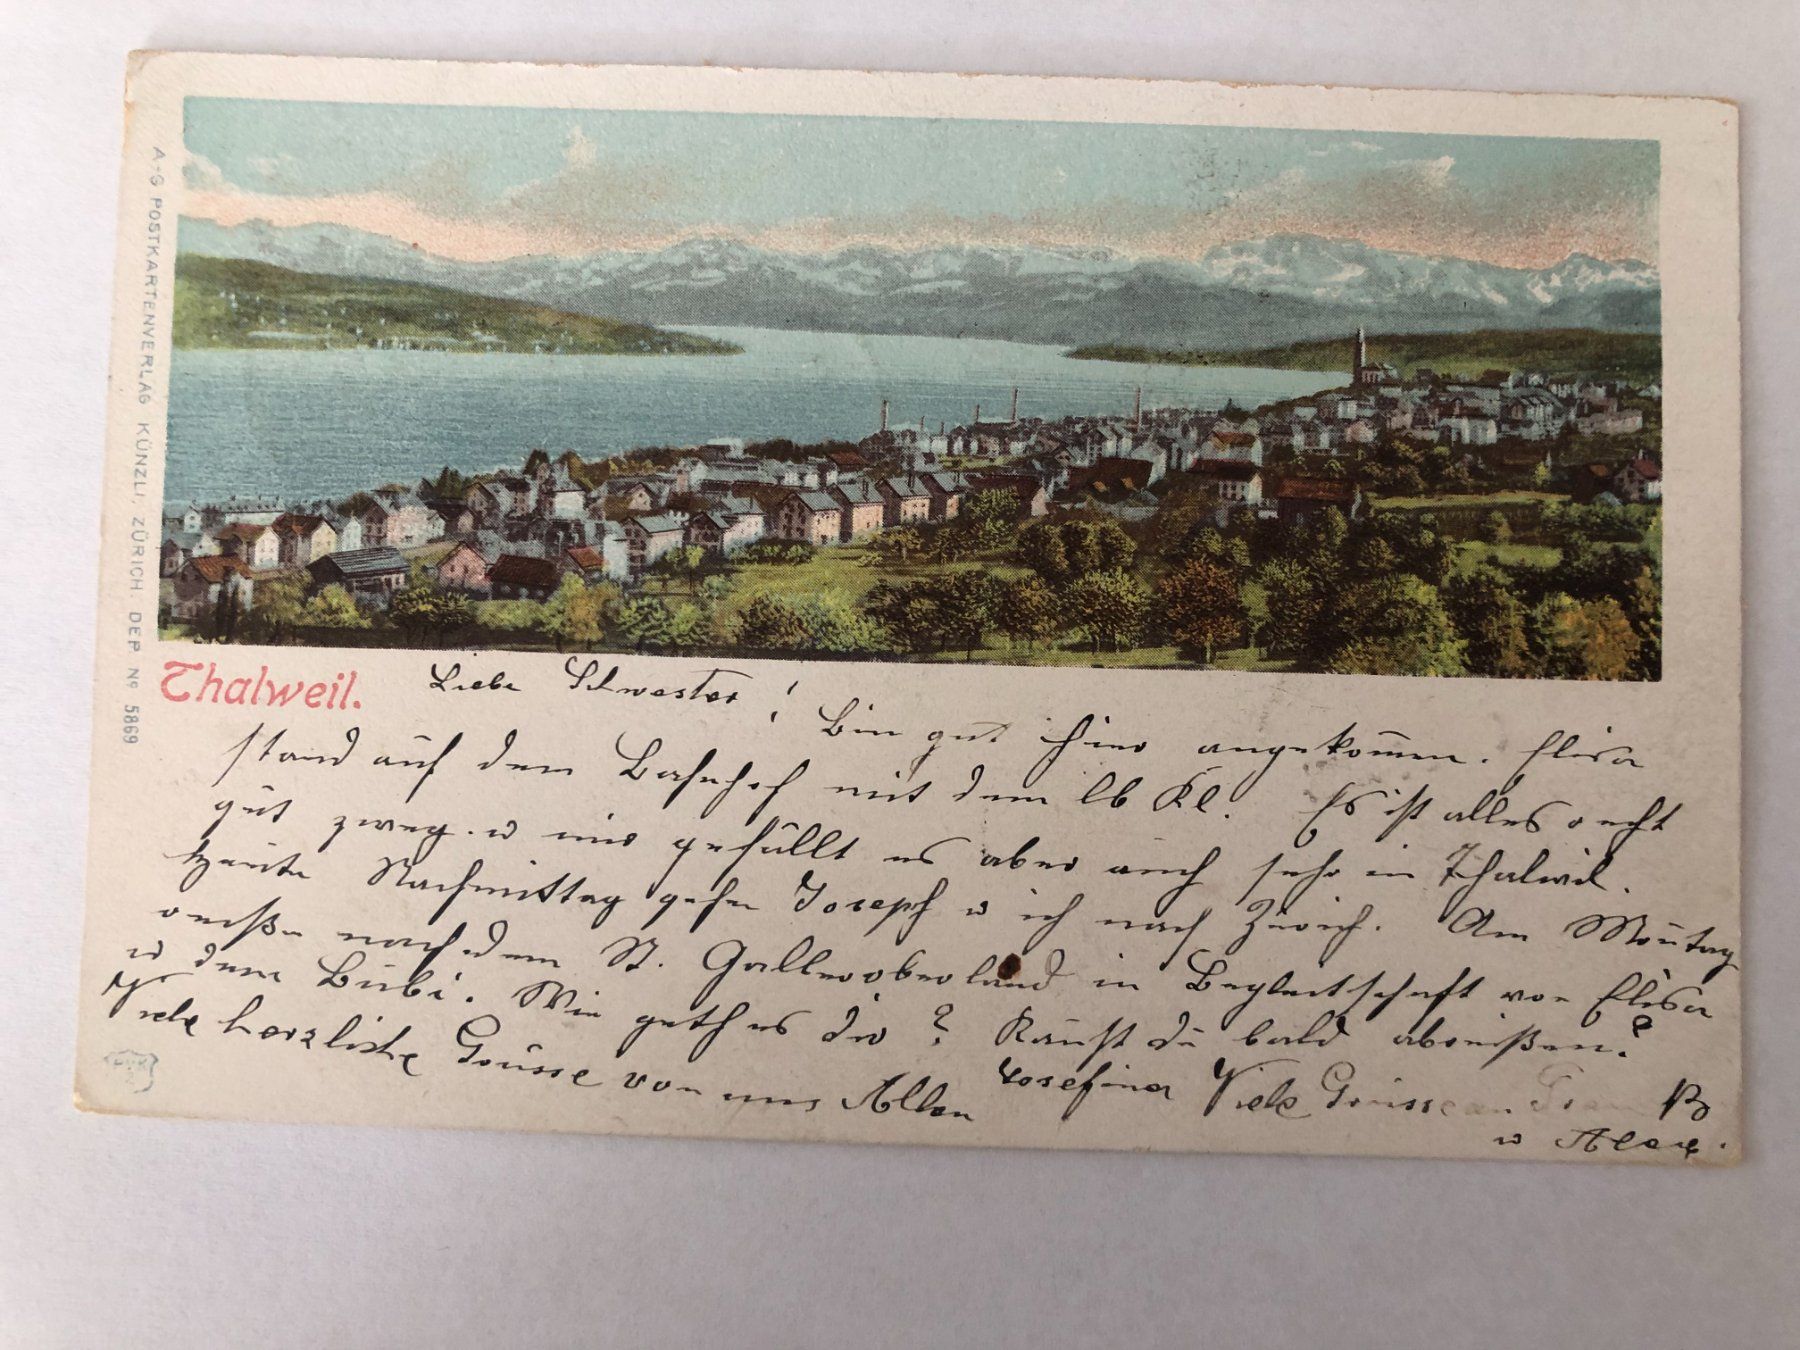 A-G POSTKARTENVERLAG KÜNZLI, ZÜRICH DEP. Nº 5869
Thalweil.
Liebe Schwester!
Bin gut hier angekommen. Elisa
stand auf dem Bahnhof mit dem lb Kl. Es ist alles recht
gut zweg. u mir gefällt es aber auch sehr in Thalwil.
Heute Nachmittag gehn Joseph u ich nach Zürich. Am Montag
reiße nach dem St. Galleroberland in Begleitschaft von Elisa
u dem Bubi. Wie geth es dir? Kanst du bald abreißen?
Viele herzliche Grüsse von uns Allen Josefina Viele Grüsse an
u